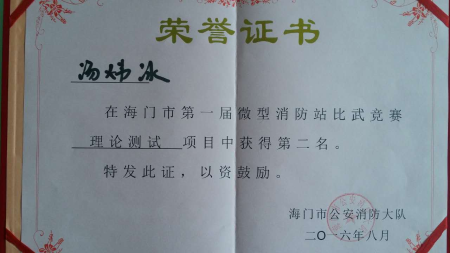 荣誉证书
汤炜冰
在海门市第一届微型消防站比武竞赛
理论测试 项目中获得第二名。
特发此证，以资鼓励。
海门市公安消防大队
二〇一六年八月